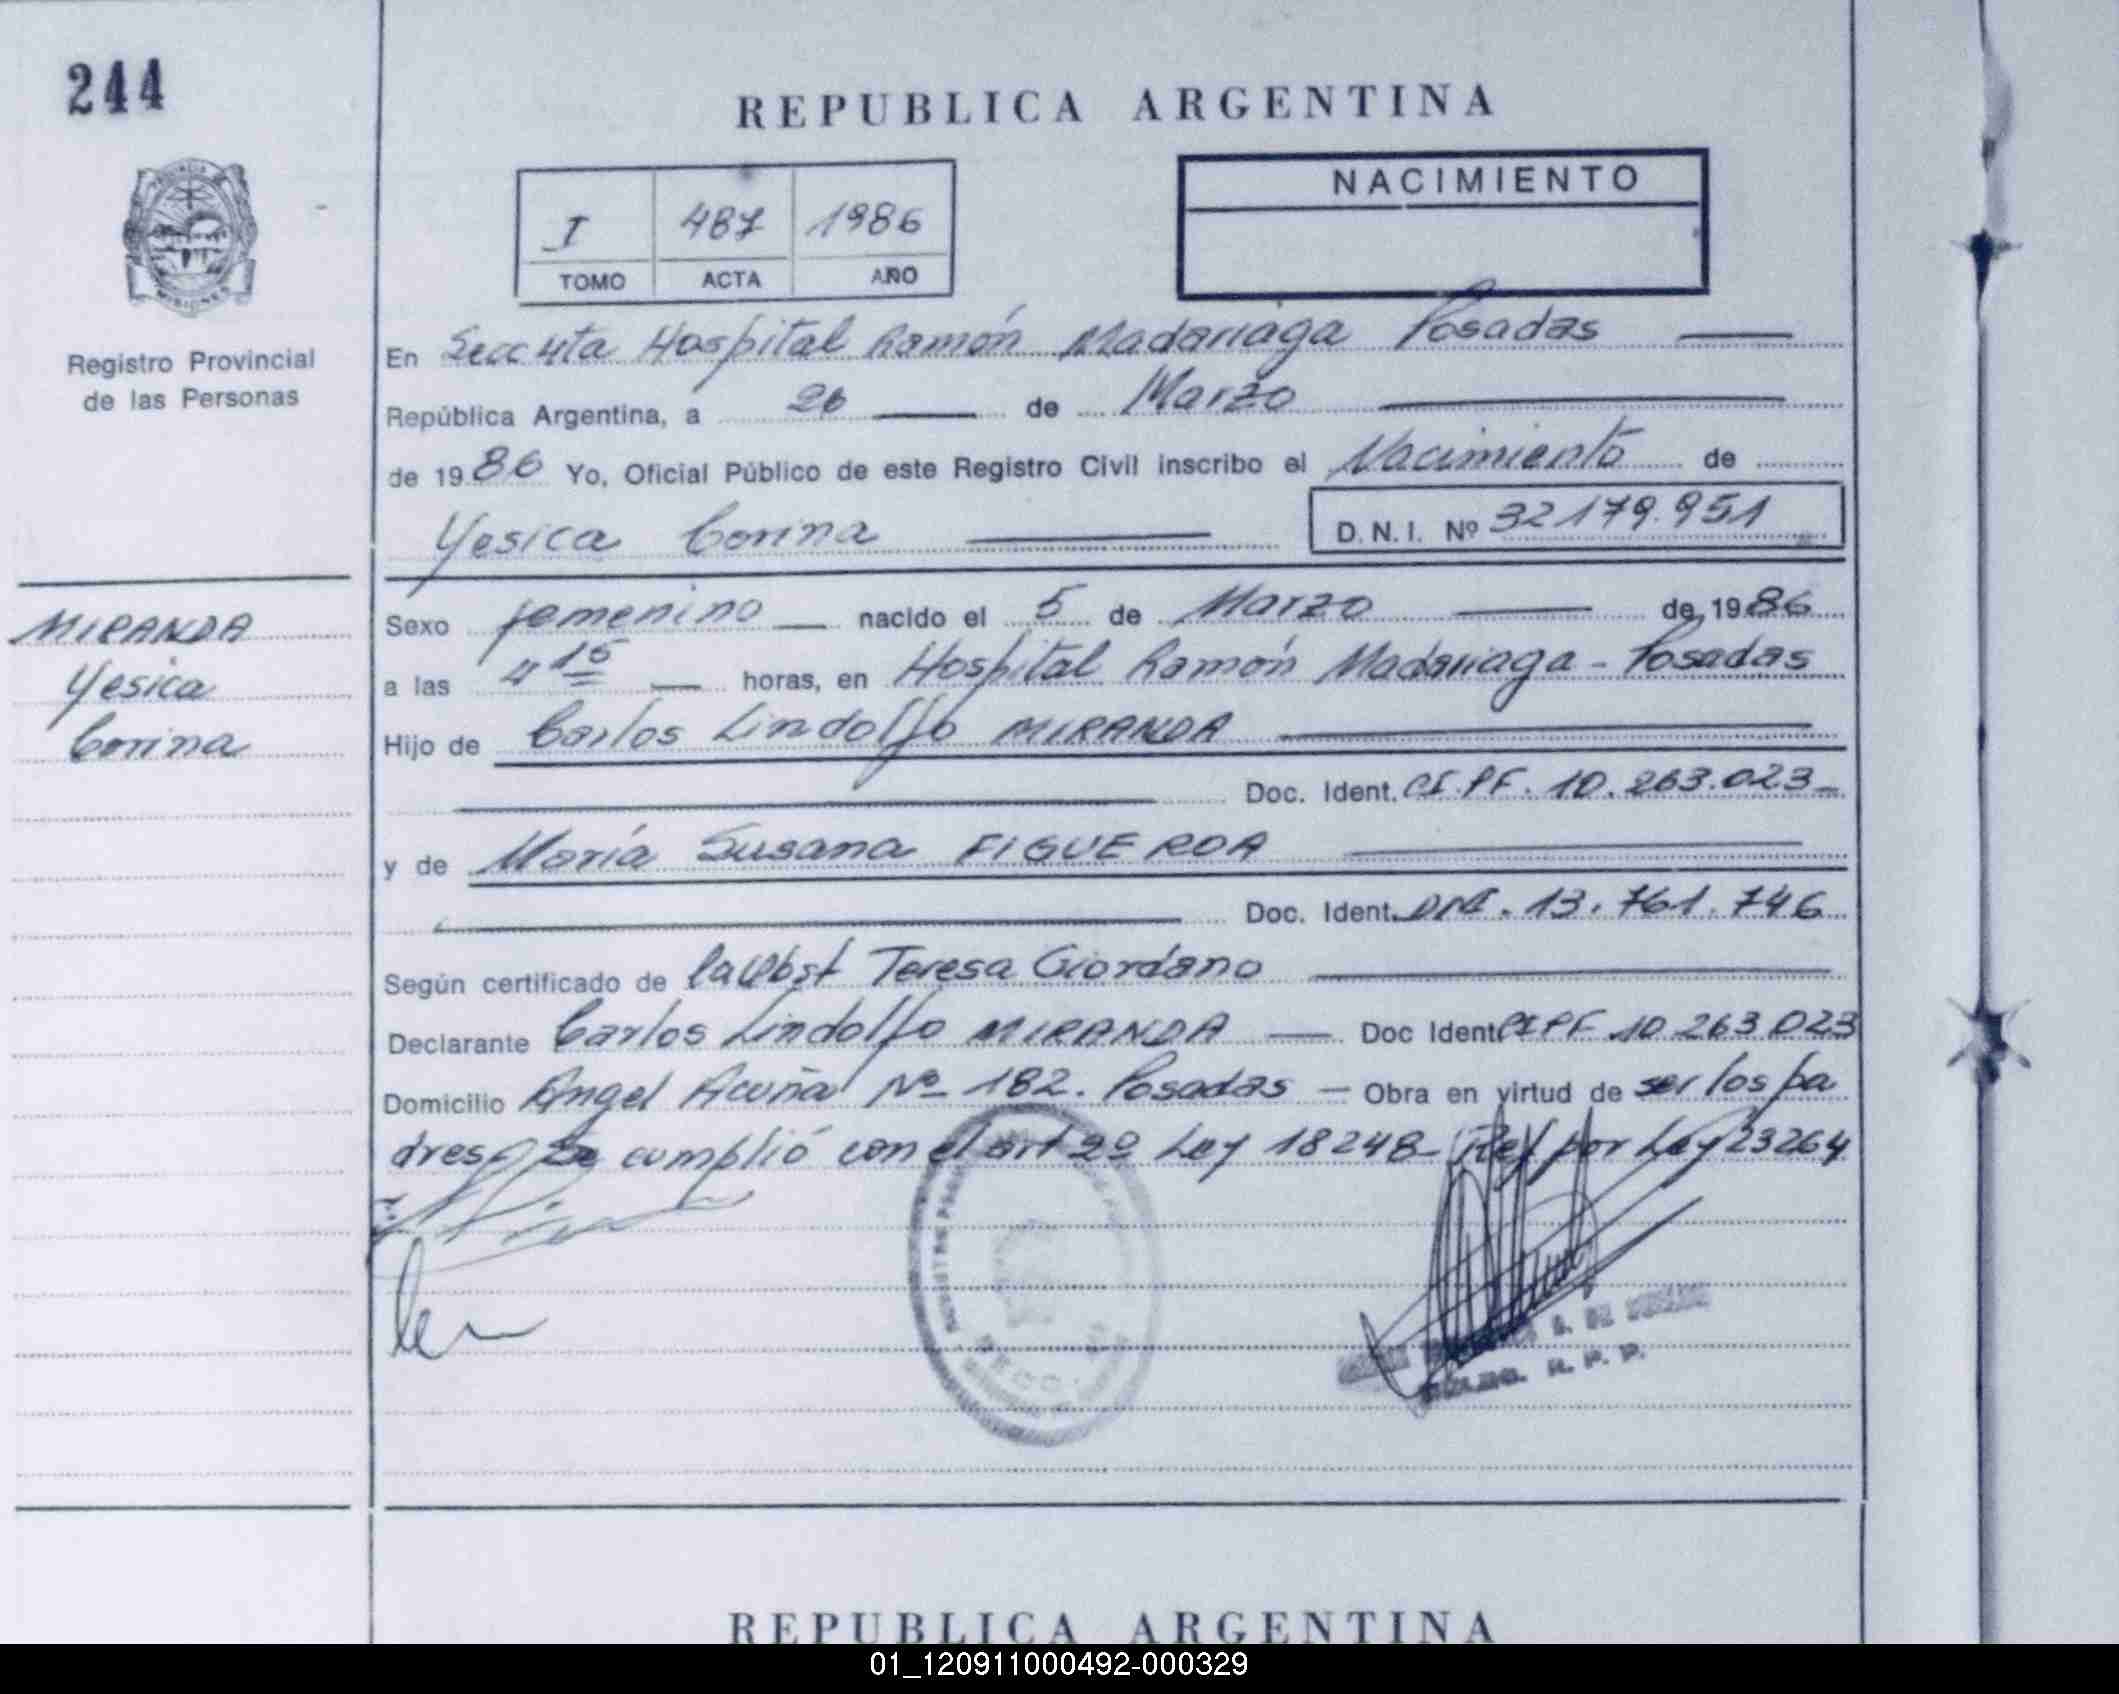 244
REPUBLICA ARGENTINA
NACIMIENTO
I 487 1986
TOMO ACTA AÑO
PROVINCIA
MISIONES
Registro Provincial
de las Personas
En Secc 4ta Hospital Ramón Madariaga Posadas
República Argentina, a 26 de Marzo
de 1986 Yo, Oficial Público de este Registro Civil inscribo el Nacimiento de
Yesica Corina D.N.I. Nº 32179.951
MIRANDA
Yesica
Corina
Sexo femenino nacido el 5 de Marzo de 1986
a las 4 15 horas, en Hospital Ramón Madariaga - Posadas
Hijo de Carlos Lindolfo MIRANDA
Doc. Ident. CI.PF. 10.263.023
y de María Susana FIGUEROA
Doc. Ident. DNI. 13.761.746
Según certificado de la Obst Teresa Giordano
Declarante Carlos Lindolfo MIRANDA — Doc Ident CIPF 10.263.023
Domicilio Angel Acuña Nº 182. Posadas — Obra en virtud de ser los pa
dres. Se cumplió con el art 2º Ley 18248- Ref por Ley 23264
R. P. P.
REPUBLICA ARGENTINA
01_120911000492-000329